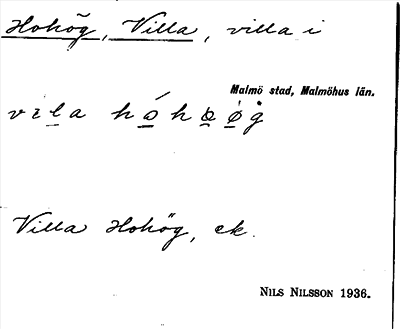 Hohög, Villa, villa i
Malmö stad, Malmöhus län.
Villa Hohög, ek.
NILS NILSSON 1936.